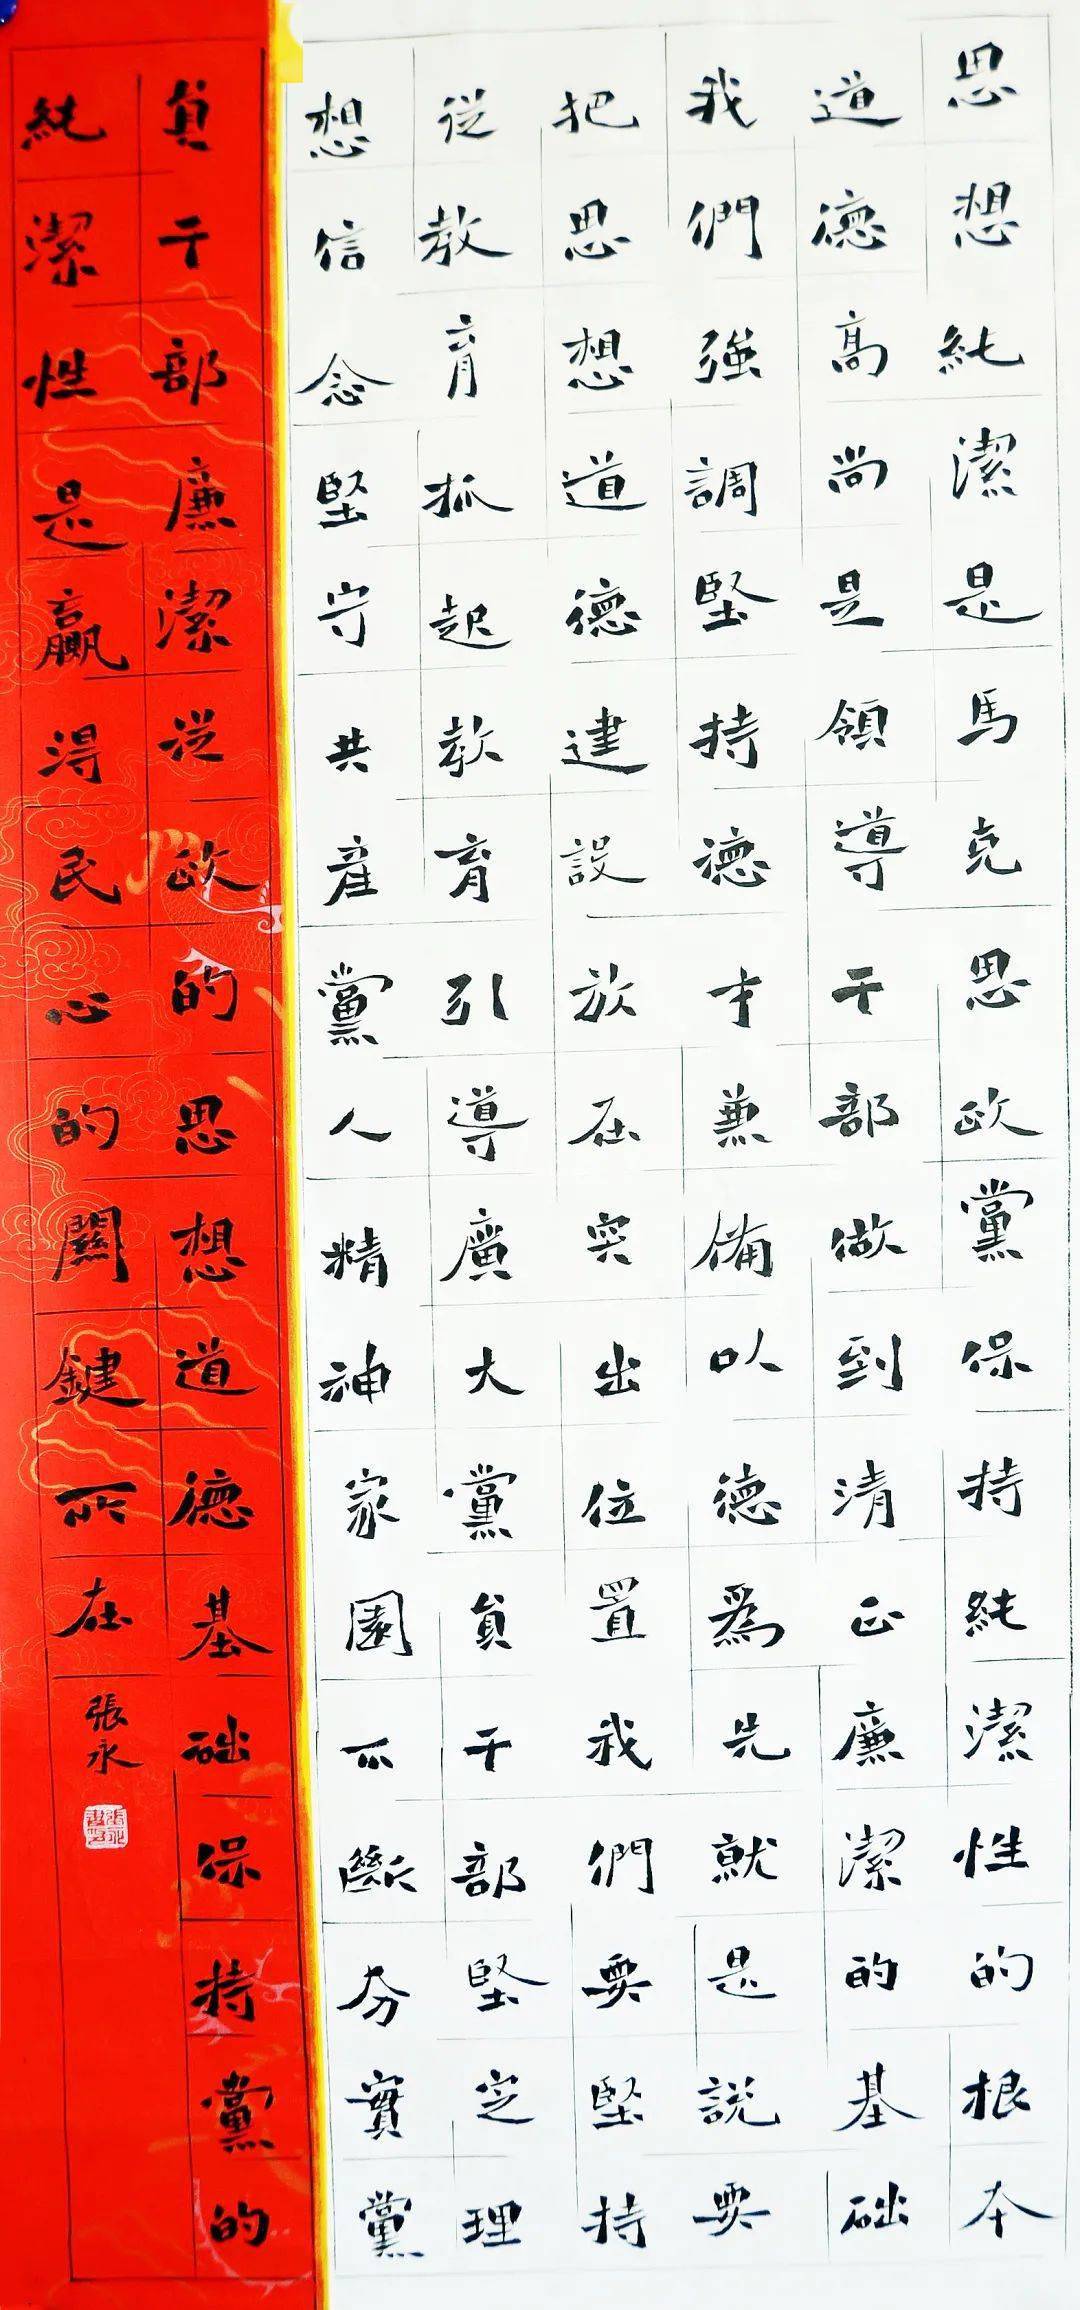 思想純潔是馬克思政黨保持純潔性的根本
道德高尚是領導干部做到清正廉潔的基础
我們強調堅持德才兼備以德爲先就是説要
把思想道德建設放在突出位置我們要堅持
從教育抓起教育引導廣大黨員干部堅定理
想信念堅守共產黨人精神家園不斷夯實黨
員干部廉潔從政的思想道德基础保持黨的
純潔性是贏得民心的關鍵所在
張永